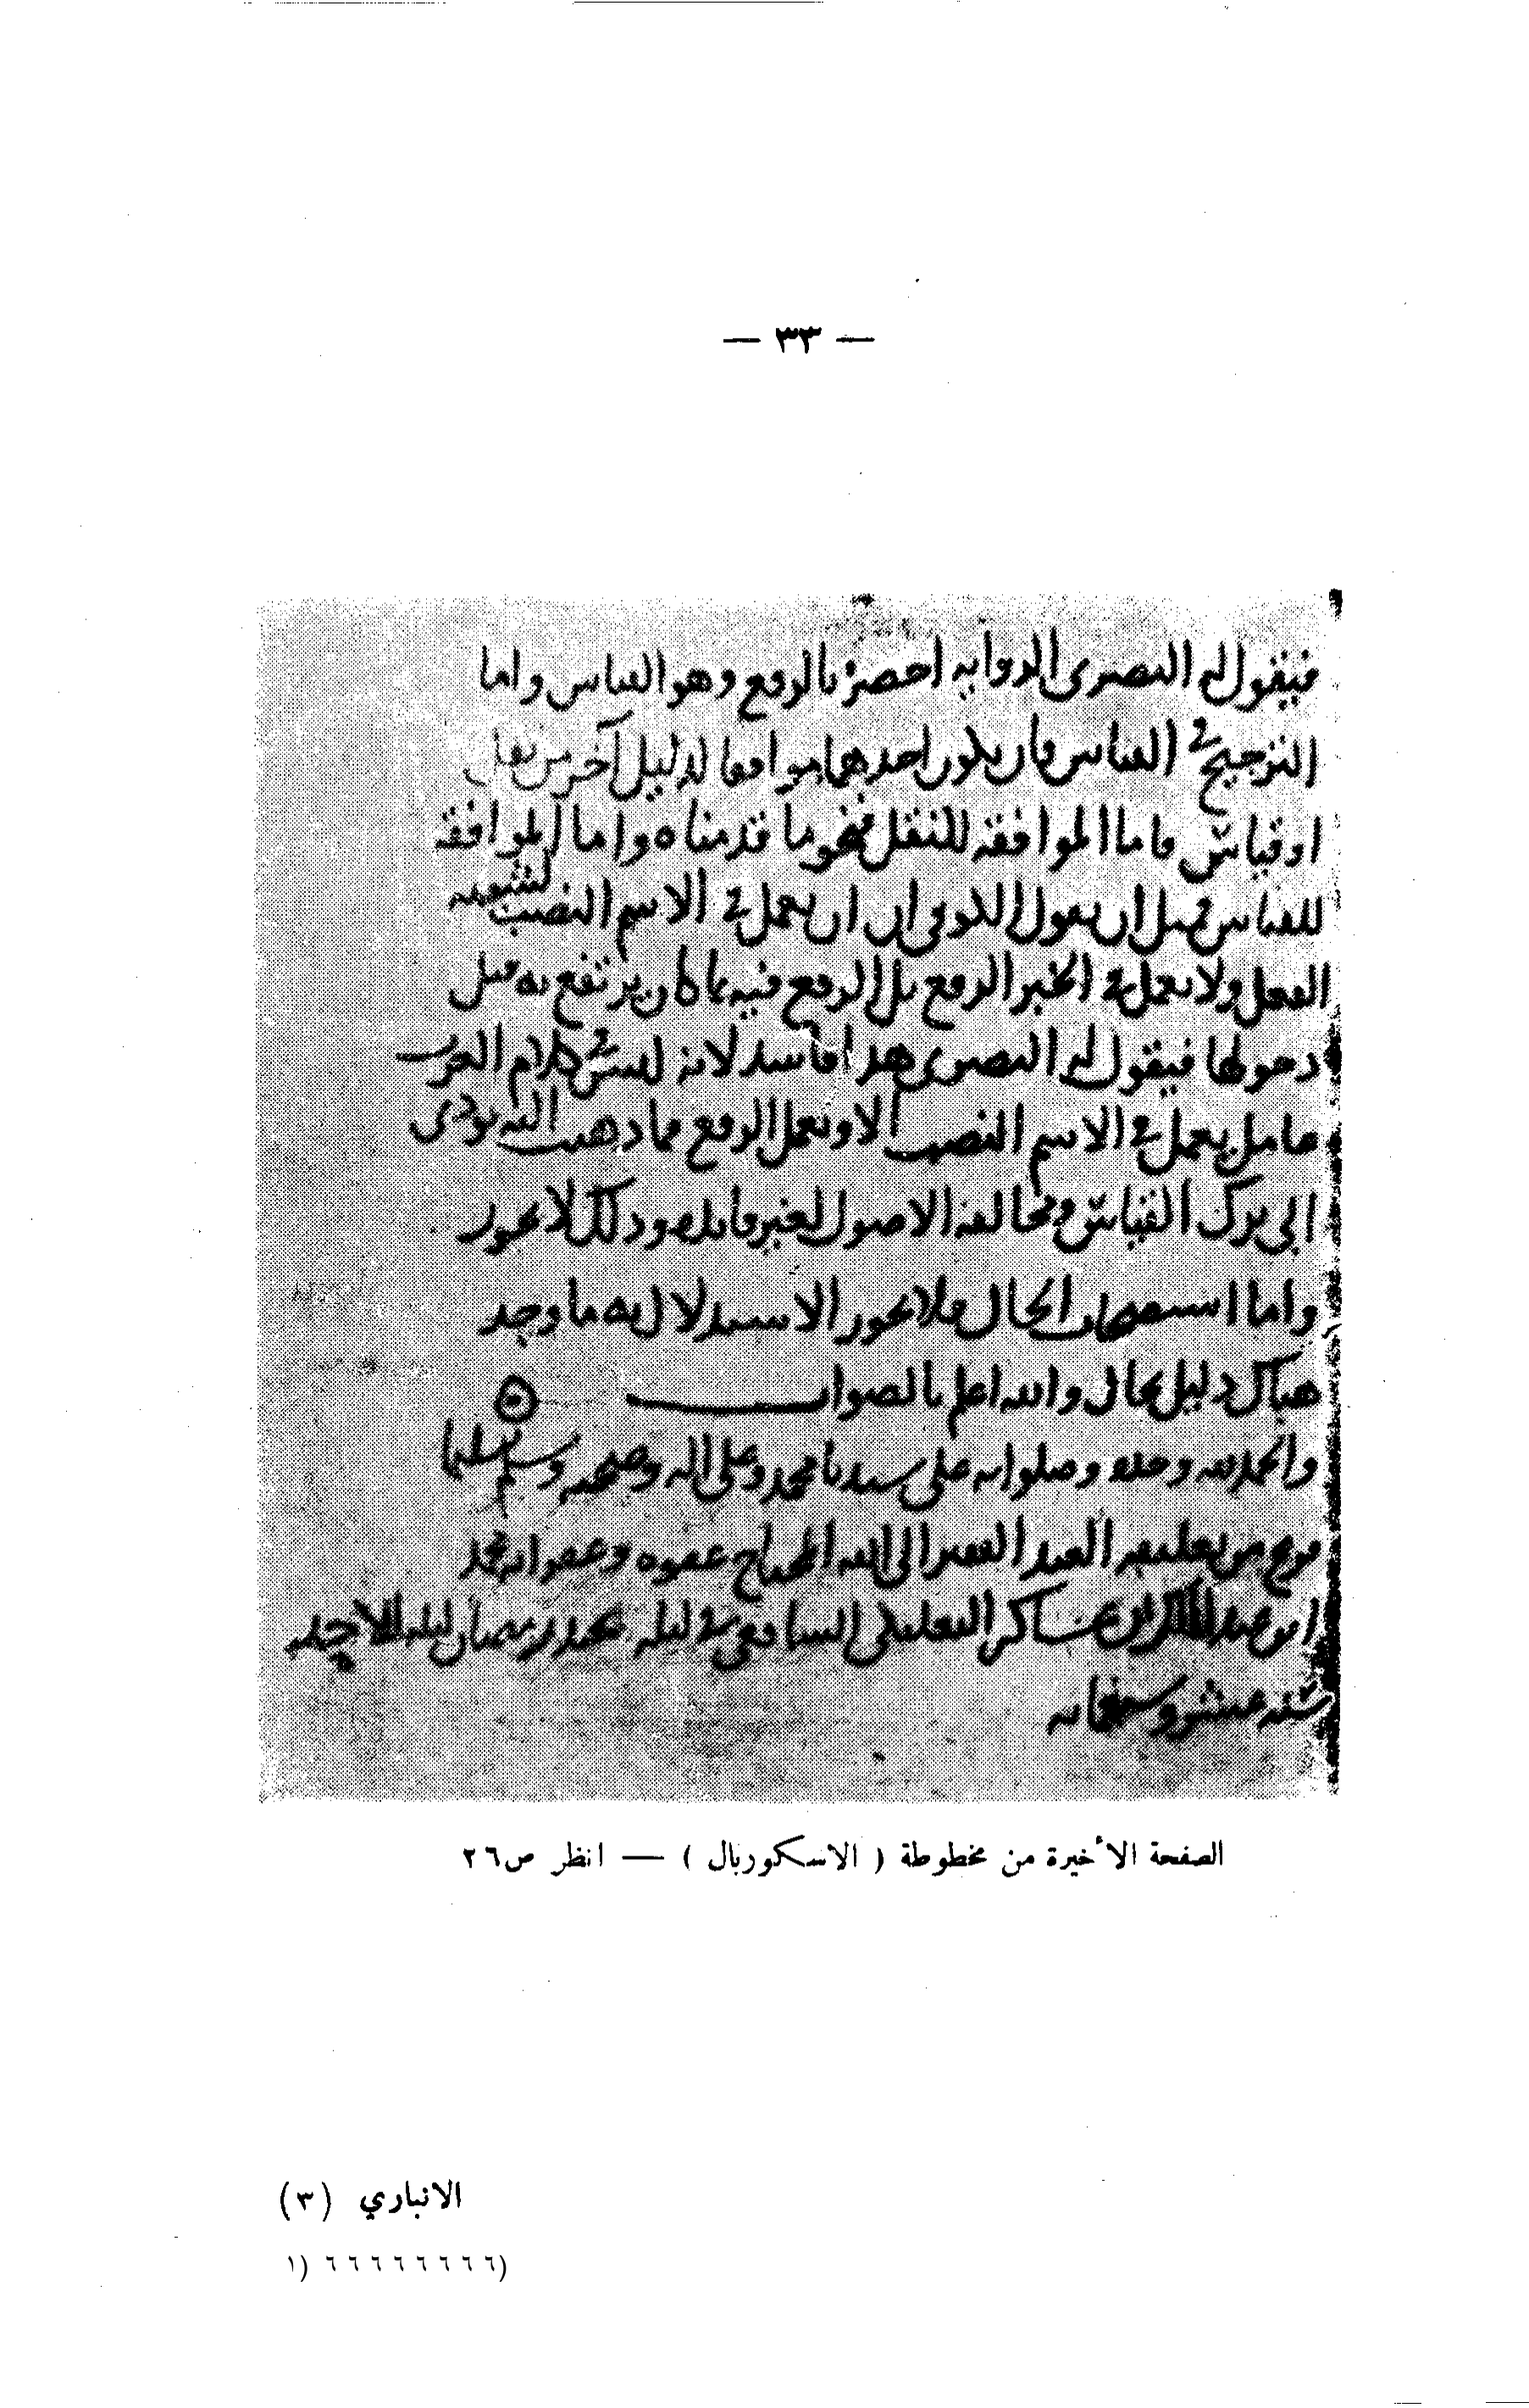 — ٣٣ —
فيقول له البصرى الرواية احضر بالرفع وهو القياس واما
الترجيح في القياس فان يكون احدهما موافقا لدليل آخر من نقل
او قياس فاما الموافقة للنقل فنحو ما قدمناه واما الموافقة
للقياس فمثل ان يقول الكوفى ان ان يعمل في الاسم النصب لشبهه
الفعل ولا يعمل في الخبر الرفع بل الرفع فيه بما كان يرتفع به قبل
دخولها فيقول له البصرى هذا فاسد لانه ليس في كلام العرب
عامل يعمل في الاسم النصب الا ويعمل الرفع فما ذهبت اليه يؤدى
الى ترك القياس ومخالفة الاصول لغير فائدة وذلك لا يجوز
واما استصحاب الحال فلا يجوز الاستدلال به ما وجد
هناك دليل بحال والله اعلم بالصواب
والحمد لله وحده وصلواته على سيدنا محمد وعلى اله وصحبه وسلم تسليما
فرغ من تعليقه العبد الفقير الى الله المحتاج عفوه وغفرانه محمد
ابن عساكر البعلبكى الشافعى في ليلة رمضان ليلة
سنة عشر وسبعمائه
الصفحة الأخيرة من مخطوطة ( الاسكوريال ) — انظر ص٢٦
الانباري (٣)
(٦ ٦ ٦ ٦ ٦ ٦ ٦ ٦ (١